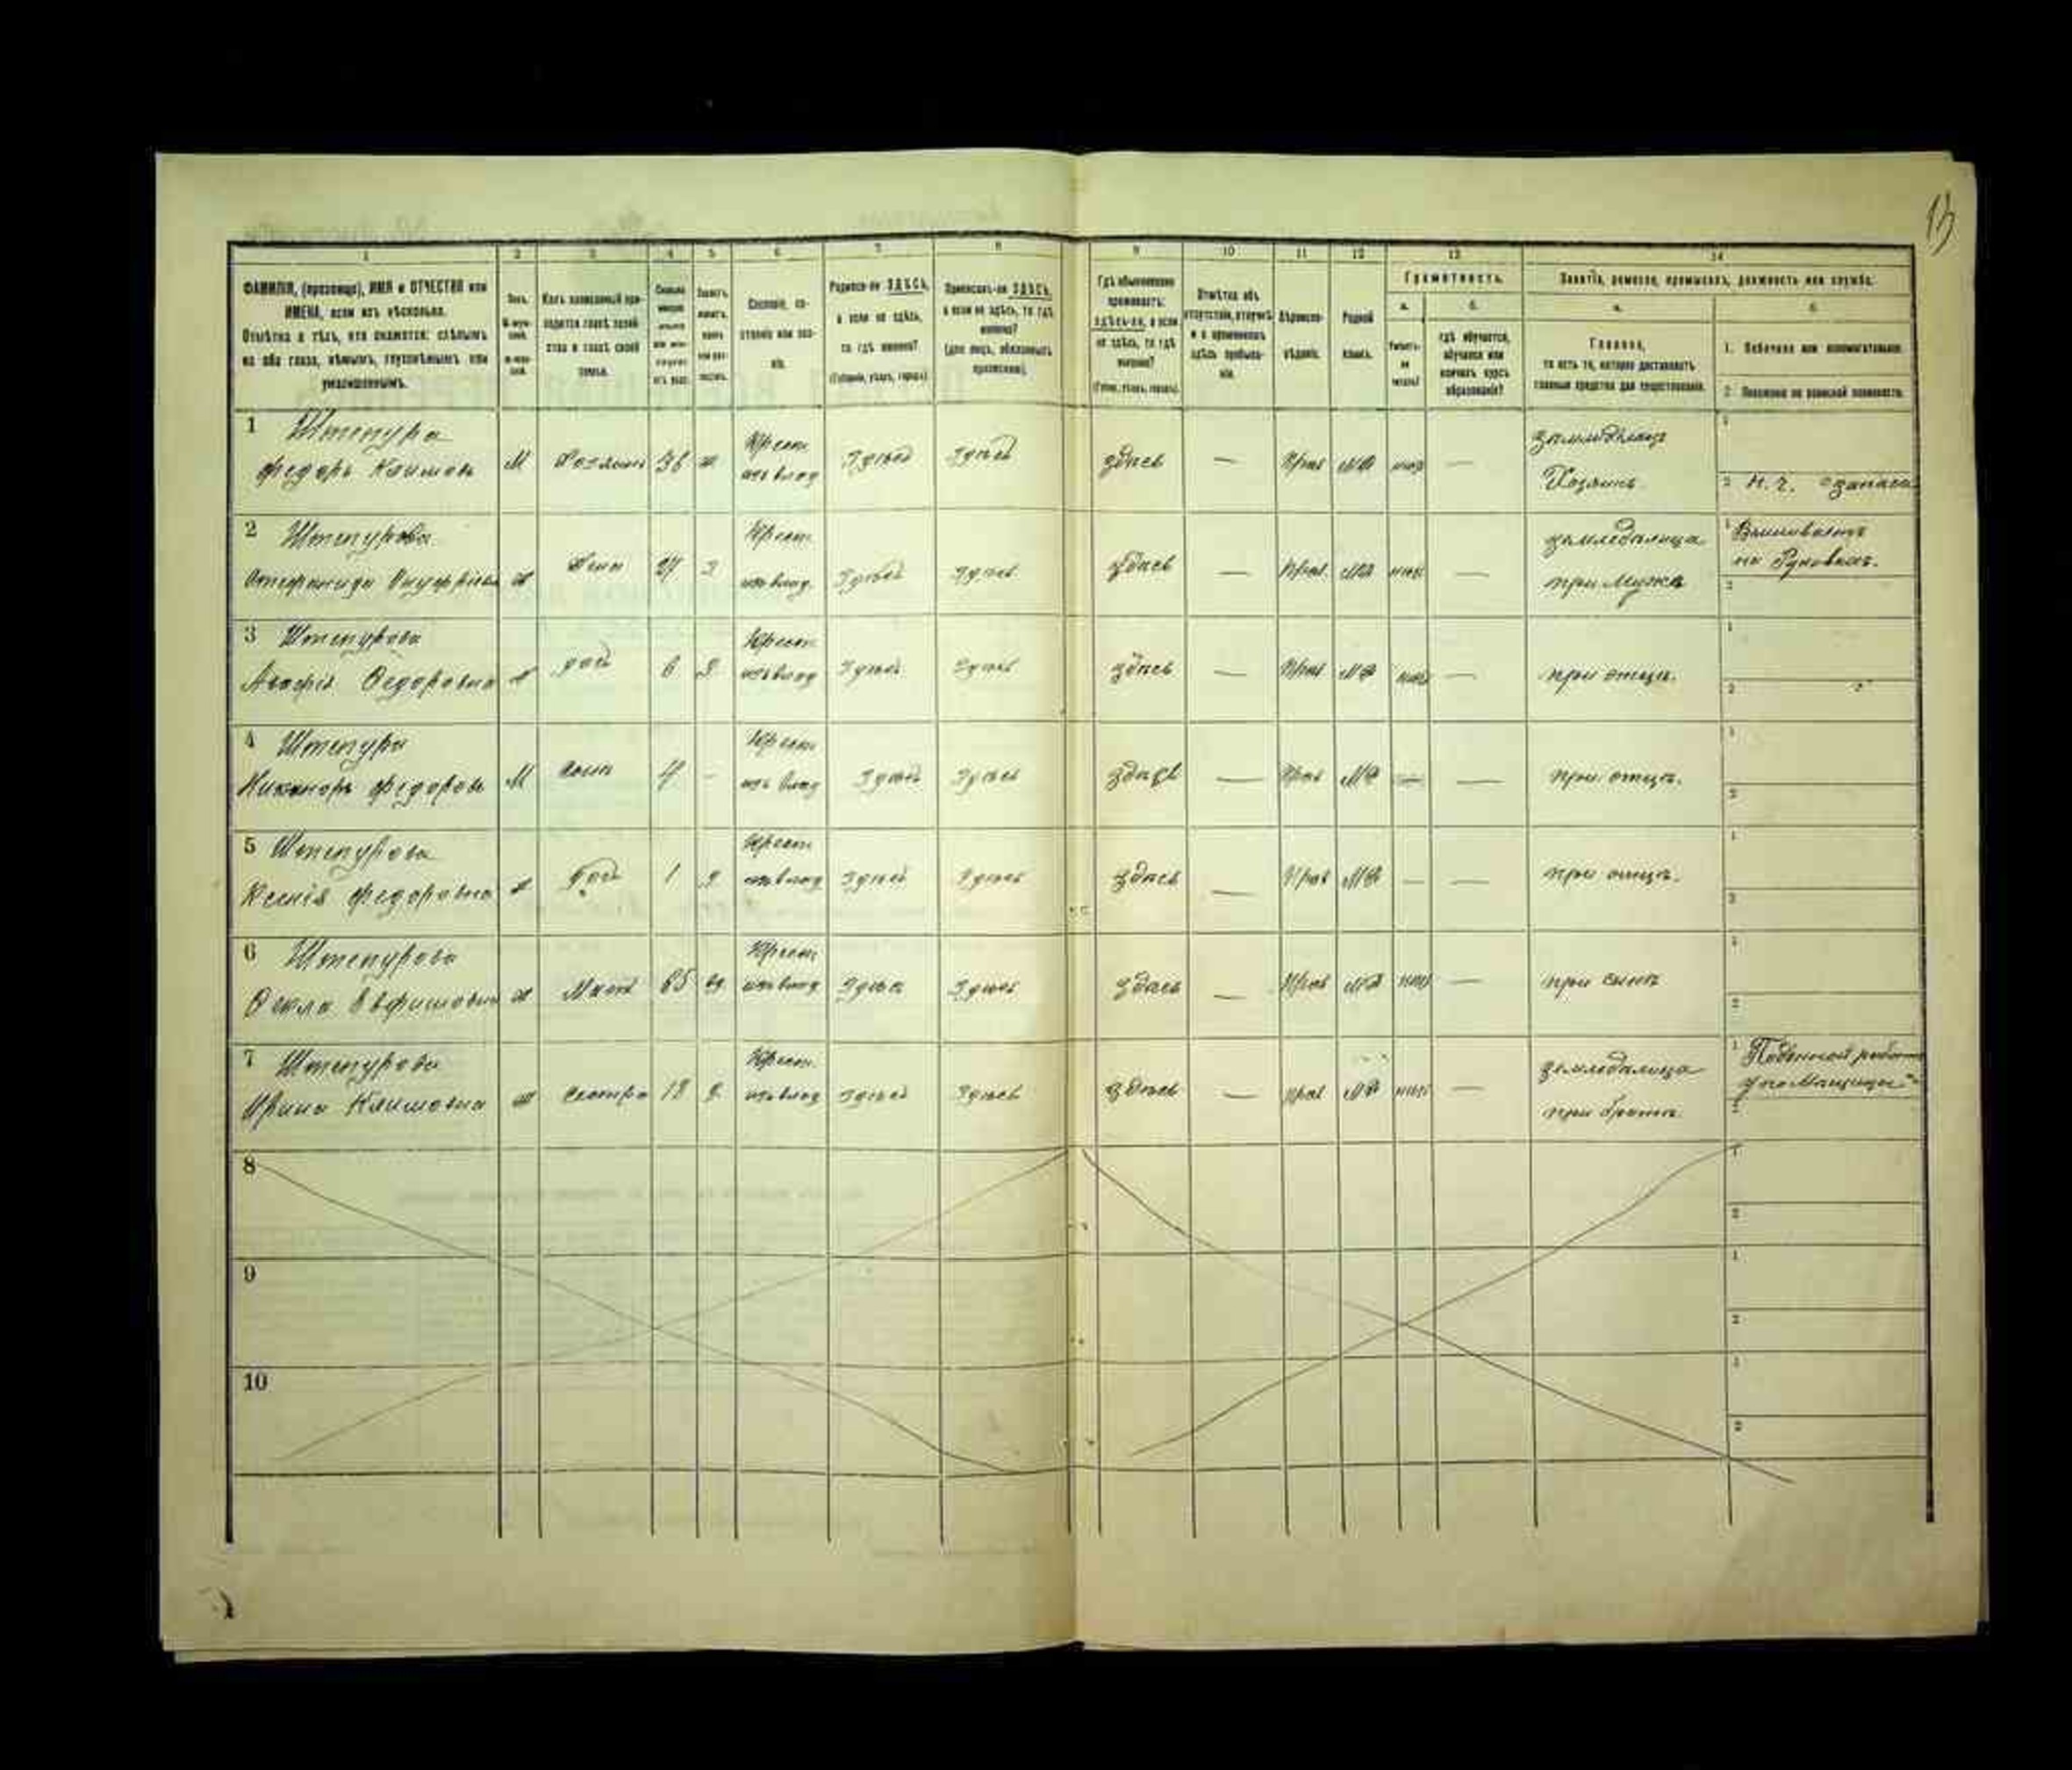 13
1 2 3 4 5 6 7 8 9 10 11 12 13 14
ФАМИЛІЯ, (прозвище), ИМЯ и ОТЧЕСТВО или
ИМЕНА, если ихъ нѣсколько.
Отмѣтка о тѣхъ, кто окажется: слѣпымъ
на оба глаза, нѣмымъ, глухонѣмымъ или
умалишеннымъ.
Полъ.
Какъ записанный при-
ходится главѣ хозяй-
ства и главѣ своей
семьи.
Сословіе, со-
стояніе или зва-
ніе.
Родился-ли ЗДѢСЬ,
а если не здѣсь,
то гдѣ именно?
(Губернія, уѣздъ, городъ).
Приписанъ-ли ЗДѢСЬ,
а если не здѣсь, то гдѣ
именно?
(для лицъ, обязанныхъ
припискою).
Гдѣ обыкновенно
проживаетъ:
здѣсь-ли, а если
не здѣсь, то гдѣ
именно?
(Губерн., уѣздъ, городъ).
Отмѣтка объ
отсутствіи, отлучкѣ
и о временномъ
здѣсь пребыва-
ніи.
Вѣроиспо-
вѣданіе.
Родной
языкъ.
Грамотность.
а. б.
Умѣетъ-
ли
читать?
гдѣ обучается,
обучался или
кончилъ курсъ
образованія?
Занятіе, ремесло, промыселъ, должность или служба.
а. б.
Главное,
то есть то, которое доставляетъ
главныя средства для существованія.
1. Побочное или вспомогательное.
2. Положеніе по воинской повинности.
1 Штепура
Федоръ Климовъ М Хозяинъ 36 ж Крест. изъ влад Здѣсь Здѣсь здѣсь — Прав МР нѣтъ — земледѣлецъ
Хозяинъ
1
2 Н. Ч. запаса
2 Штепурова
Стефанида Онуфріева ж Жена 27 З Крест. изъ влад. Здѣсь Здѣсь здѣсь — Прав. МР нѣтъ — земледѣлица
при Мужѣ
1 Вышиваетъ
на Рукавахъ.
2
3 Штепурова
Агафія Ѳедоровна ж доч 6 Д Крест. изъ влад Здѣсь Здѣсь здѣсь — Прав МР нѣтъ — при отцѣ.
1
2
4 Штепура
Никаноръ Федоровъ М сынъ 4 - Крест. изъ влад Здѣсь Здѣсь здѣсь — Прав МР — — при отцѣ.
1
2
5 Штепурова
Ксенія Федоровна ж Доч 1 Д Крест. изъ влад Здѣсь Здѣсь здѣсь — Прав МР — — при отцѣ.
1
2
6 Штепурова
Ѳекла Евфимовна ж Мать 65 вд. Крест. изъ влад. Здѣсь Здѣсь здѣсь — Прав МР нѣтъ — при сынѣ
1
2
7 Штепурова
Ирина Климовна ж Сестра 18 Д. Крест. изъ влад Здѣсь Здѣсь здѣсь — прав МР нѣтъ — земледѣлица
при братѣ.
1 Поденной работ
у помѣщицы
2
8
1
2
9
1
2
10
1
2